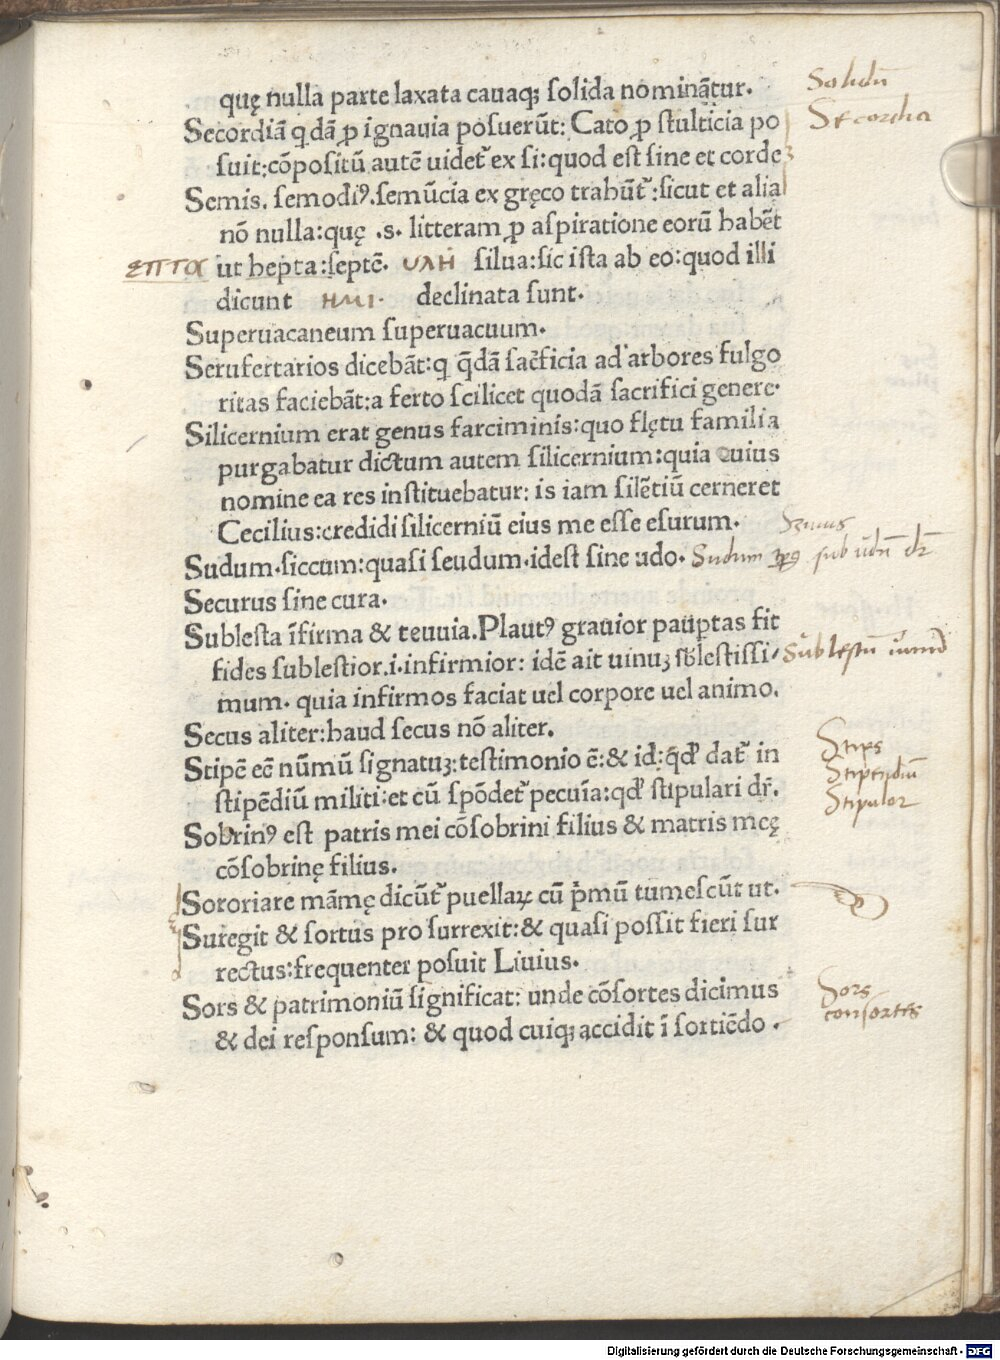 quę nulla parte laxata cauaq; solida nominãtur.
Solidũ
Secordiã q̃dã ꝓ ignauia posuerũt: Cato ꝓ stulticia po
Secordia
suit: cõpositũ autẽ uidet᷑ ex si: quod est sine et corde
Semis. semodiꝰ. semũcia ex gręco trahũt᷑: sicut et alia
nõ nulla: quę .s. litteram ꝓ aspiratione eorũ habẽt
επτα ut hepta: septẽ. υλη silua: sic ista ab eo: quod illi
dicunt ημι. declinata sunt.
Superuacaneum superuacuum.
Serufertarios dicebãt: q q̃dã sac̃ficia ad arbores fulgo
ritas faciebãt: a ferto scilicet quodã sacrifici genere.
Silicernium erat genus farciminis: quo flętu familia
purgabatur dictum autem silicernium: quia cuius
nomine ea res instituebatur: is iam silẽtiũ cerneret
Cecilius: credidi silicerniũ eius me esse esurum.
Sudum. siccum: quasi seudum. idest sine udo. Sudum sub udũ dr̃
Securus sine cura.
Sublesta ĩfirma & teuuia. Plautꝰ grauior paup̃tas fit
fides sublestior .i. infirmior: idẽ ait uinuꝫ sb̃lestissi-
Sublestũ
mum. quia infirmos faciat uel corpore uel animo.
Secus aliter: haud secus nõ aliter.
Stips
Stipẽ eẽ nũmũ signatuꝫ: testimonio ẽ: & id: q̃d dat᷑ in
Stipendiũ
stipẽdiũ militi: et cũ spõdet᷑ pecuĩa: qd̛ stipulari dr̃.
Stipulor
Sobrinꝰ est patris mei cõsobrini filius & matris meę
cõsobrinę filius.
Sororiare mãmę dicũt᷑ puellaꝝ cũ p̃mũ tumescũt ut.
Suregit & sortus pro surrexit: & quasi possit fieri sur
rectus: frequenter posuit Liuius.
Sors & patrimoniũ significat: unde cõsortes dicimus
Sors
consortes
& dei responsum: & quod cuiq; accidit ĩ sortiẽdo.
Digitalisierung gefördert durch die Deutsche Forschungsgemeinschaft - DFG